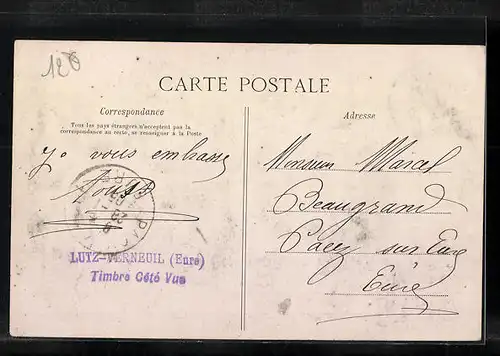 120
CARTE POSTALE
Correspondance
Tous les pays étrangers n'acceptent pas la
correspondance au recto, se renseigner à la Poste
Je vous embrasse
tous
LUTZ-VERNEUIL (Eure)
Timbre Côté Vue
Adresse
Monsieur Marcel
Beaugrand
Pacy sur Eure
Eure